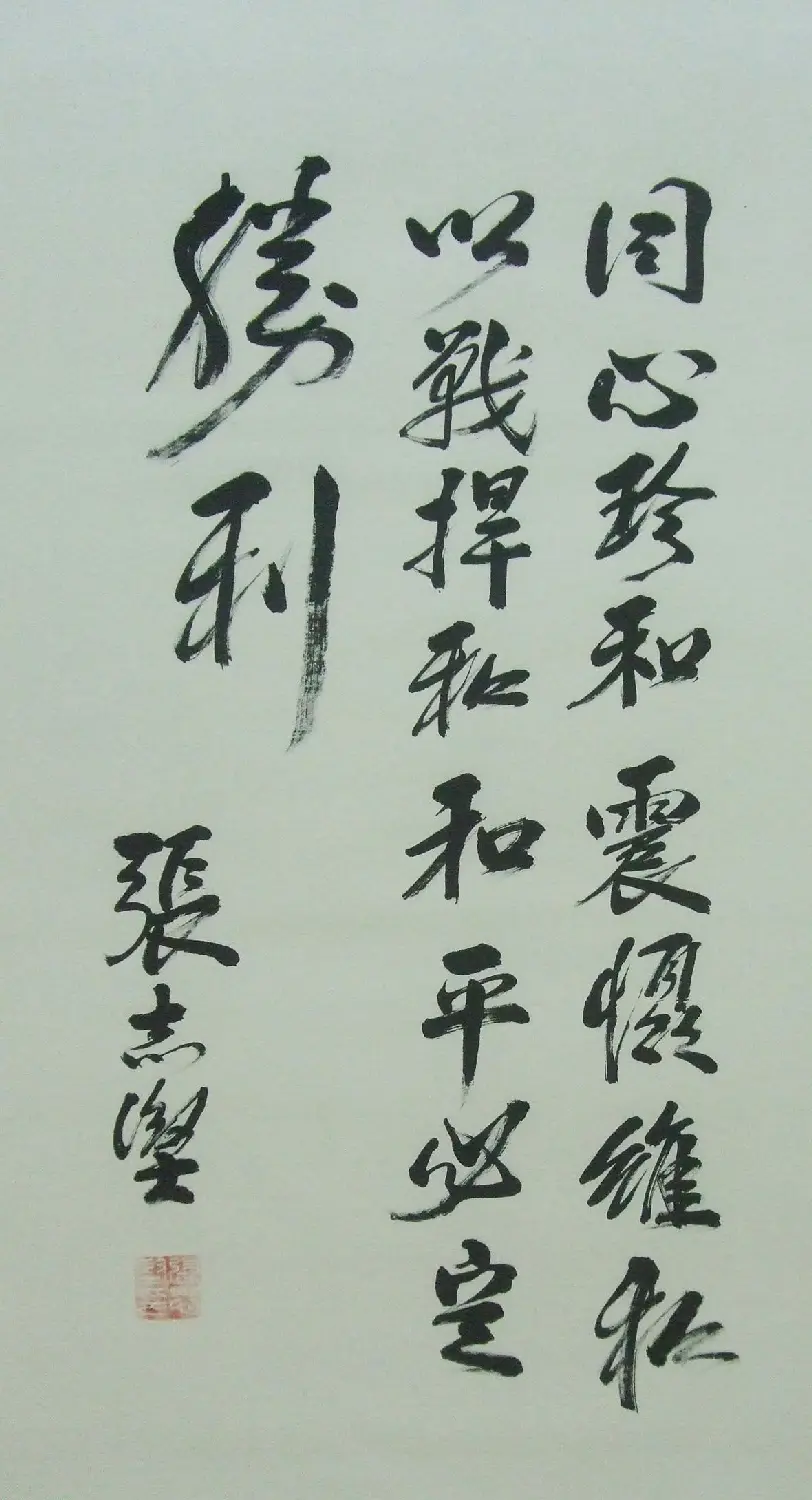 同心珍和震慑維和
以戰捍和和平必定
勝利
張志堅